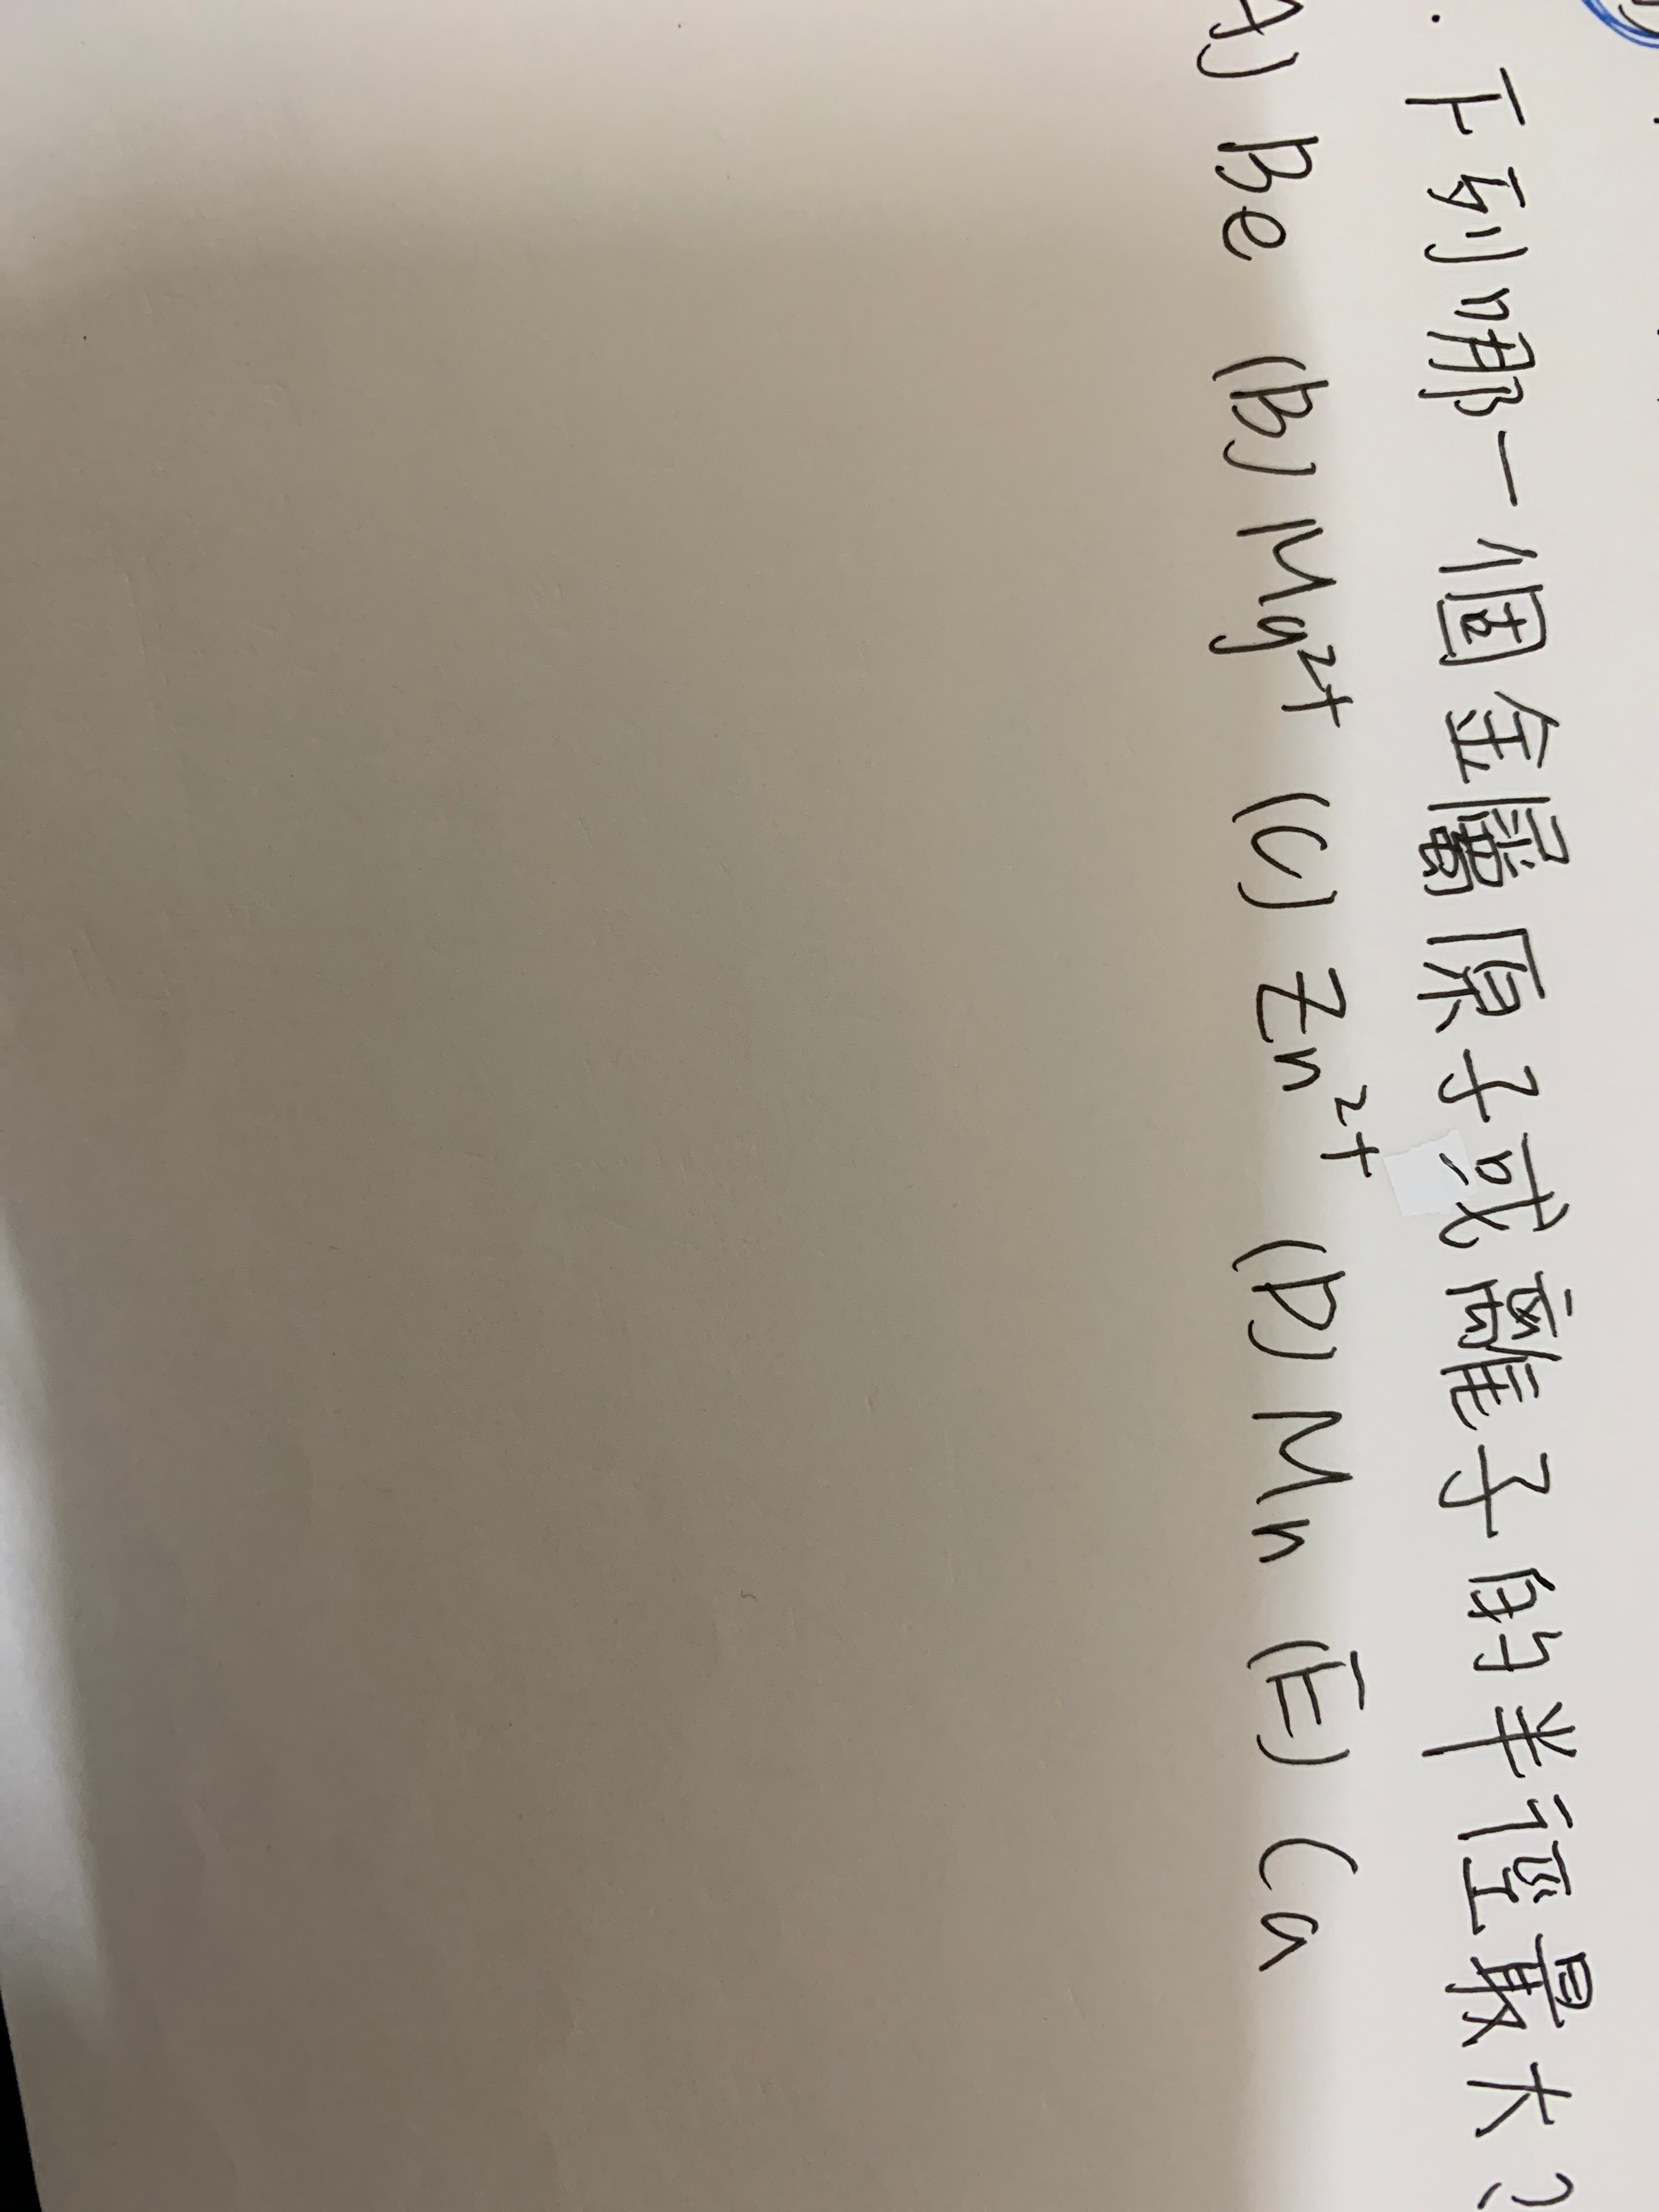 . 下列哪一個金屬原子或離子的半徑最大?
A) Be (B) Mg²⁺ (C) Zn²⁺ (D) Mn (E) Ca